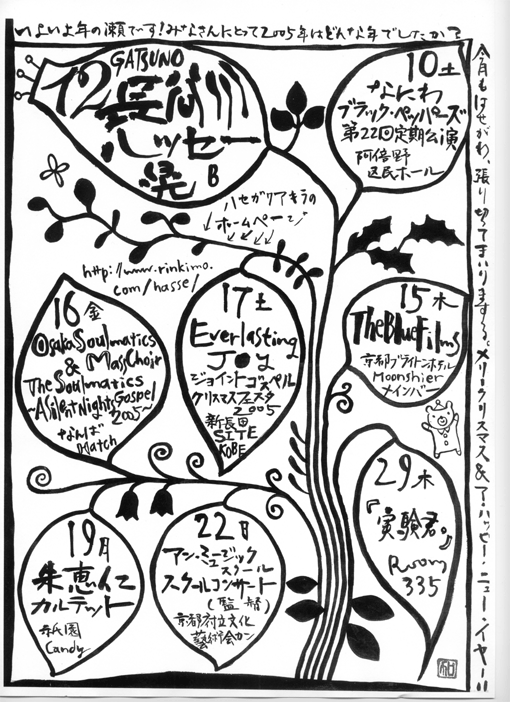 いよいよ年の瀬でーす!みなさんにとって2005年はどんな年でしたか?
今月もはせがわ、張り切ってまいりまする。メリークリスマス&ア・ハッピー・ニュー・イヤー!!
12
GATSUNO
ハッセー
B
10土
なにわ
ブラック・ペッパーズ
第22回定期公演
阿倍野
区民ホール
ハセガワアキラの
ホームページ
http://www.rinkimo.
com/hasse/
15木
The Blue Films
京都ブライトンホテル
Moonshier
メインバー
16金
Osaka Soulmatics
& Mass Choir
The Soulmatics
~A Silent Night, Gospel
2005~
なんば
Hatch
17土
Everlasting
Joy
ジョイントゴスペル
クリスマスフェスタ
2005
新長田
SITE
KOBE
29木
『実験君。』
Room
335
19月
朱恵仁
カルテット
祇園
Candy
22
アン・ミュージック
スクール
スクールコンサート
(監督)
京都府立文化
藝術会カン